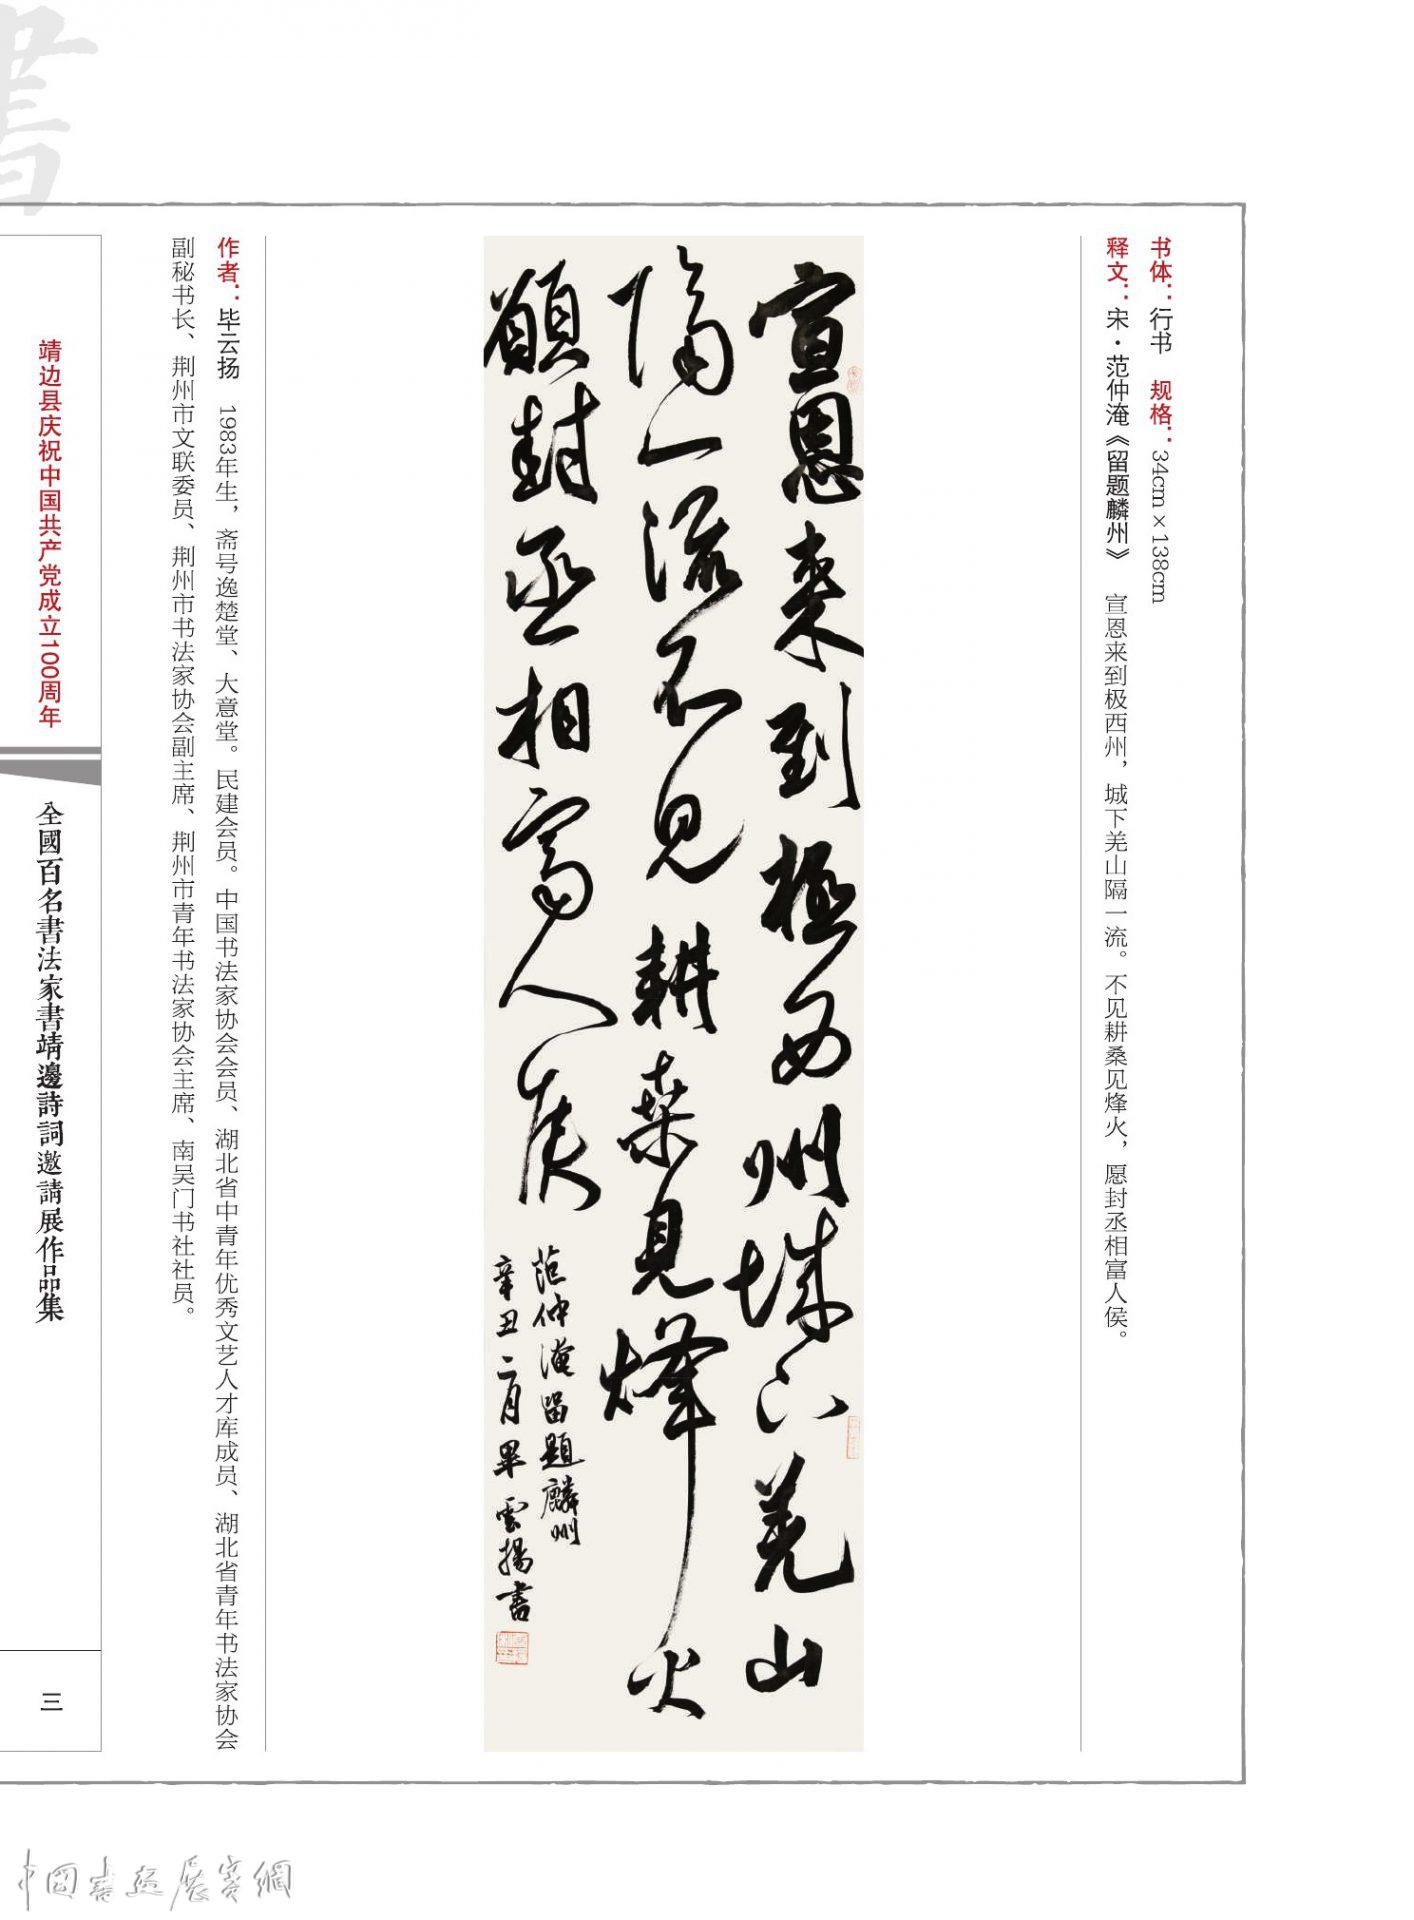 書
书体：行书　规格：34cm×138cm
释文：宋·范仲淹《留题麟州》　宣恩来到极西州，城下羌山隔一流。不见耕桑见烽火，愿封丞相富人侯。
宣恩来到極西州城下羌山
隔一流不見耕桑見烽火
願封丞相富人侯
范仲淹留題麟州
辛丑二月畢雲揚書
作者：毕云扬　1983年生，斋号逸楚堂、大意堂。民建会员。中国书法家协会会员、湖北省中青年优秀文艺人才库成员、湖北省青年书法家协会
副秘书长、荆州市文联委员、荆州市书法家协会副主席、荆州市青年书法家协会主席、南吴门书社社员。
靖边县庆祝中国共产党成立100周年
全國百名書法家書靖邊詩詞邀請展作品集
三
中國書画展賽網